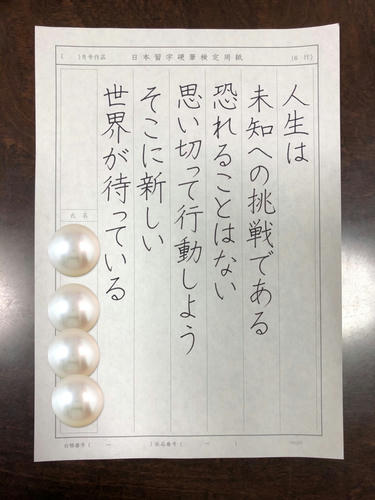 ( )月号作品 日本習字硬筆検定用紙 (6行)
人生は
未知への挑戦である
恐れることはない
思い切って行動しよう
そこに新しい
世界が待っている
氏名